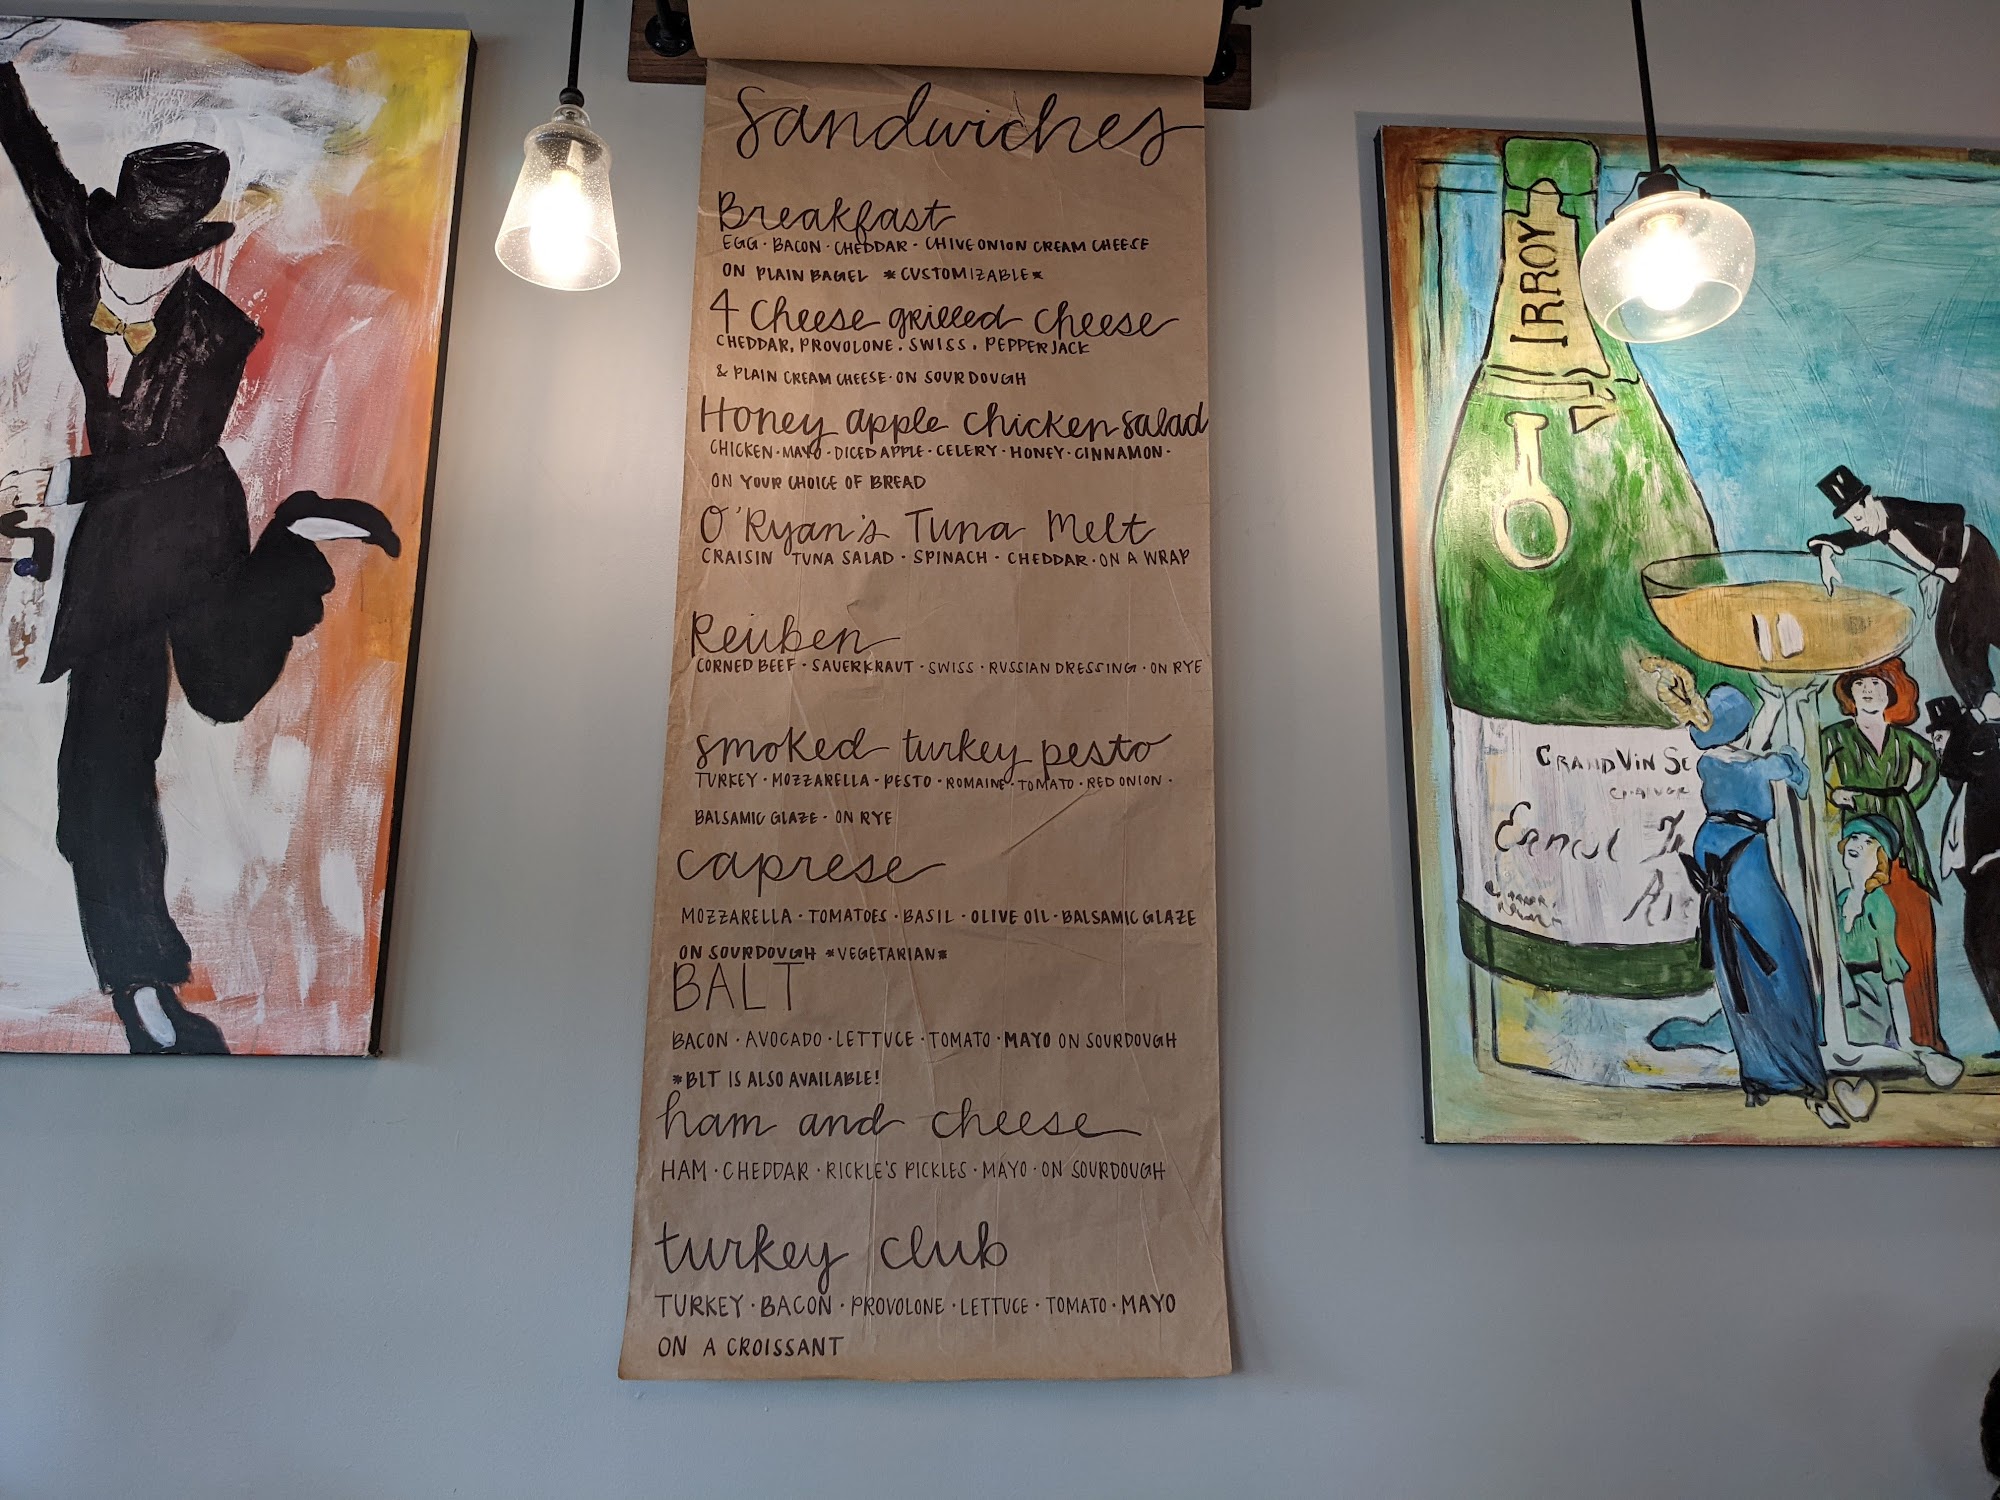 Sandwiches
Breakfast
EGG · BACON · CHEDDAR · CHIVE ONION CREAM CHEESE
ON PLAIN BAGEL *CUSTOMIZABLE*
4 Cheese grilled cheese
CHEDDAR, PROVOLONE, SWISS, PEPPER JACK
& PLAIN CREAM CHEESE · ON SOURDOUGH
Honey apple chicken salad
CHICKEN · MAYO · DICED APPLE · CELERY · HONEY · CINNAMON ·
ON YOUR CHOICE OF BREAD
O'Ryan's Tuna Melt
CRAISIN TUNA SALAD · SPINACH · CHEDDAR · ON A WRAP
Reuben
CORNED BEEF · SAUERKRAUT · SWISS · RUSSIAN DRESSING · ON RYE
smoked turkey pesto
TURKEY · MOZZARELLA · PESTO · ROMAINE · TOMATO · RED ONION ·
BALSAMIC GLAZE · ON RYE
caprese
MOZZARELLA · TOMATOES · BASIL · OLIVE OIL · BALSAMIC GLAZE
ON SOURDOUGH *VEGETARIAN*
BALT
BACON · AVOCADO · LETTUCE · TOMATO · MAYO ON SOURDOUGH
*BLT IS ALSO AVAILABLE!
ham and cheese
HAM · CHEDDAR · RICKLE'S PICKLES · MAYO · ON SOURDOUGH
turkey club
TURKEY · BACON · PROVOLONE · LETTUCE · TOMATO · MAYO
ON A CROISSANT
IRROY
GRAND VIN SC